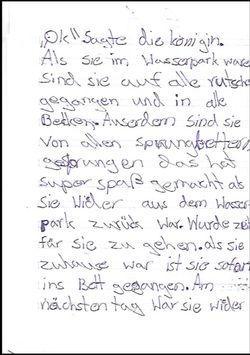 „Ok" Sagte die königin.
Als sie im Wasserpark ware
sind sie auf alle rutsche
gegangen und in alle
Becken. Auserdem sind sie
von allen sprungbettern
gesprungen das hat
super spaß gemacht als
sie wider aus dem Wasser
park zurück war. Wurde zeit
für sie zu gehen. als sie
zuhause war ist sie sofort
ins Bett gegangen. Am
nächsten tag war sie wider